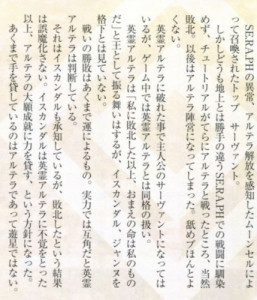 SE.RA.PHの異常、アルテラ解放を感知したムーンセルによ
って召喚されたトップ サーヴァント。
しかしどうも地上とは勝手の違うSE.RA.PHでの戦闘に馴染
めず、チュートリアルがてらにアルテラと戦ったところ、当然
敗北。以後はアルテラ陣営になってしまった。舐めプほんとよ
くない。
英霊アルテラに破れた事で主人公のサーヴァントになっては
いるが、ゲーム中では英霊アルテラとは同格の扱い。
英霊アルテラは「私に敗北した以上、おまえの命は私のもの
だ」と王として振る舞いはするが、イスカンダル、ジャンヌを
格下とは見ていない。
戦いの勝敗はあくまで運によるもの。実力では互角だと英霊
アルテラは判断している。
それはイスカンダルも承知しているが、敗北したという結果
は誤魔化さない。イスカンダルは英霊アルテラに不覚をとった
以上、アルテラの大願成就に力を貸す、という方針になった。
あくまで手を貸しているのはアルテラであって遊星ではない。